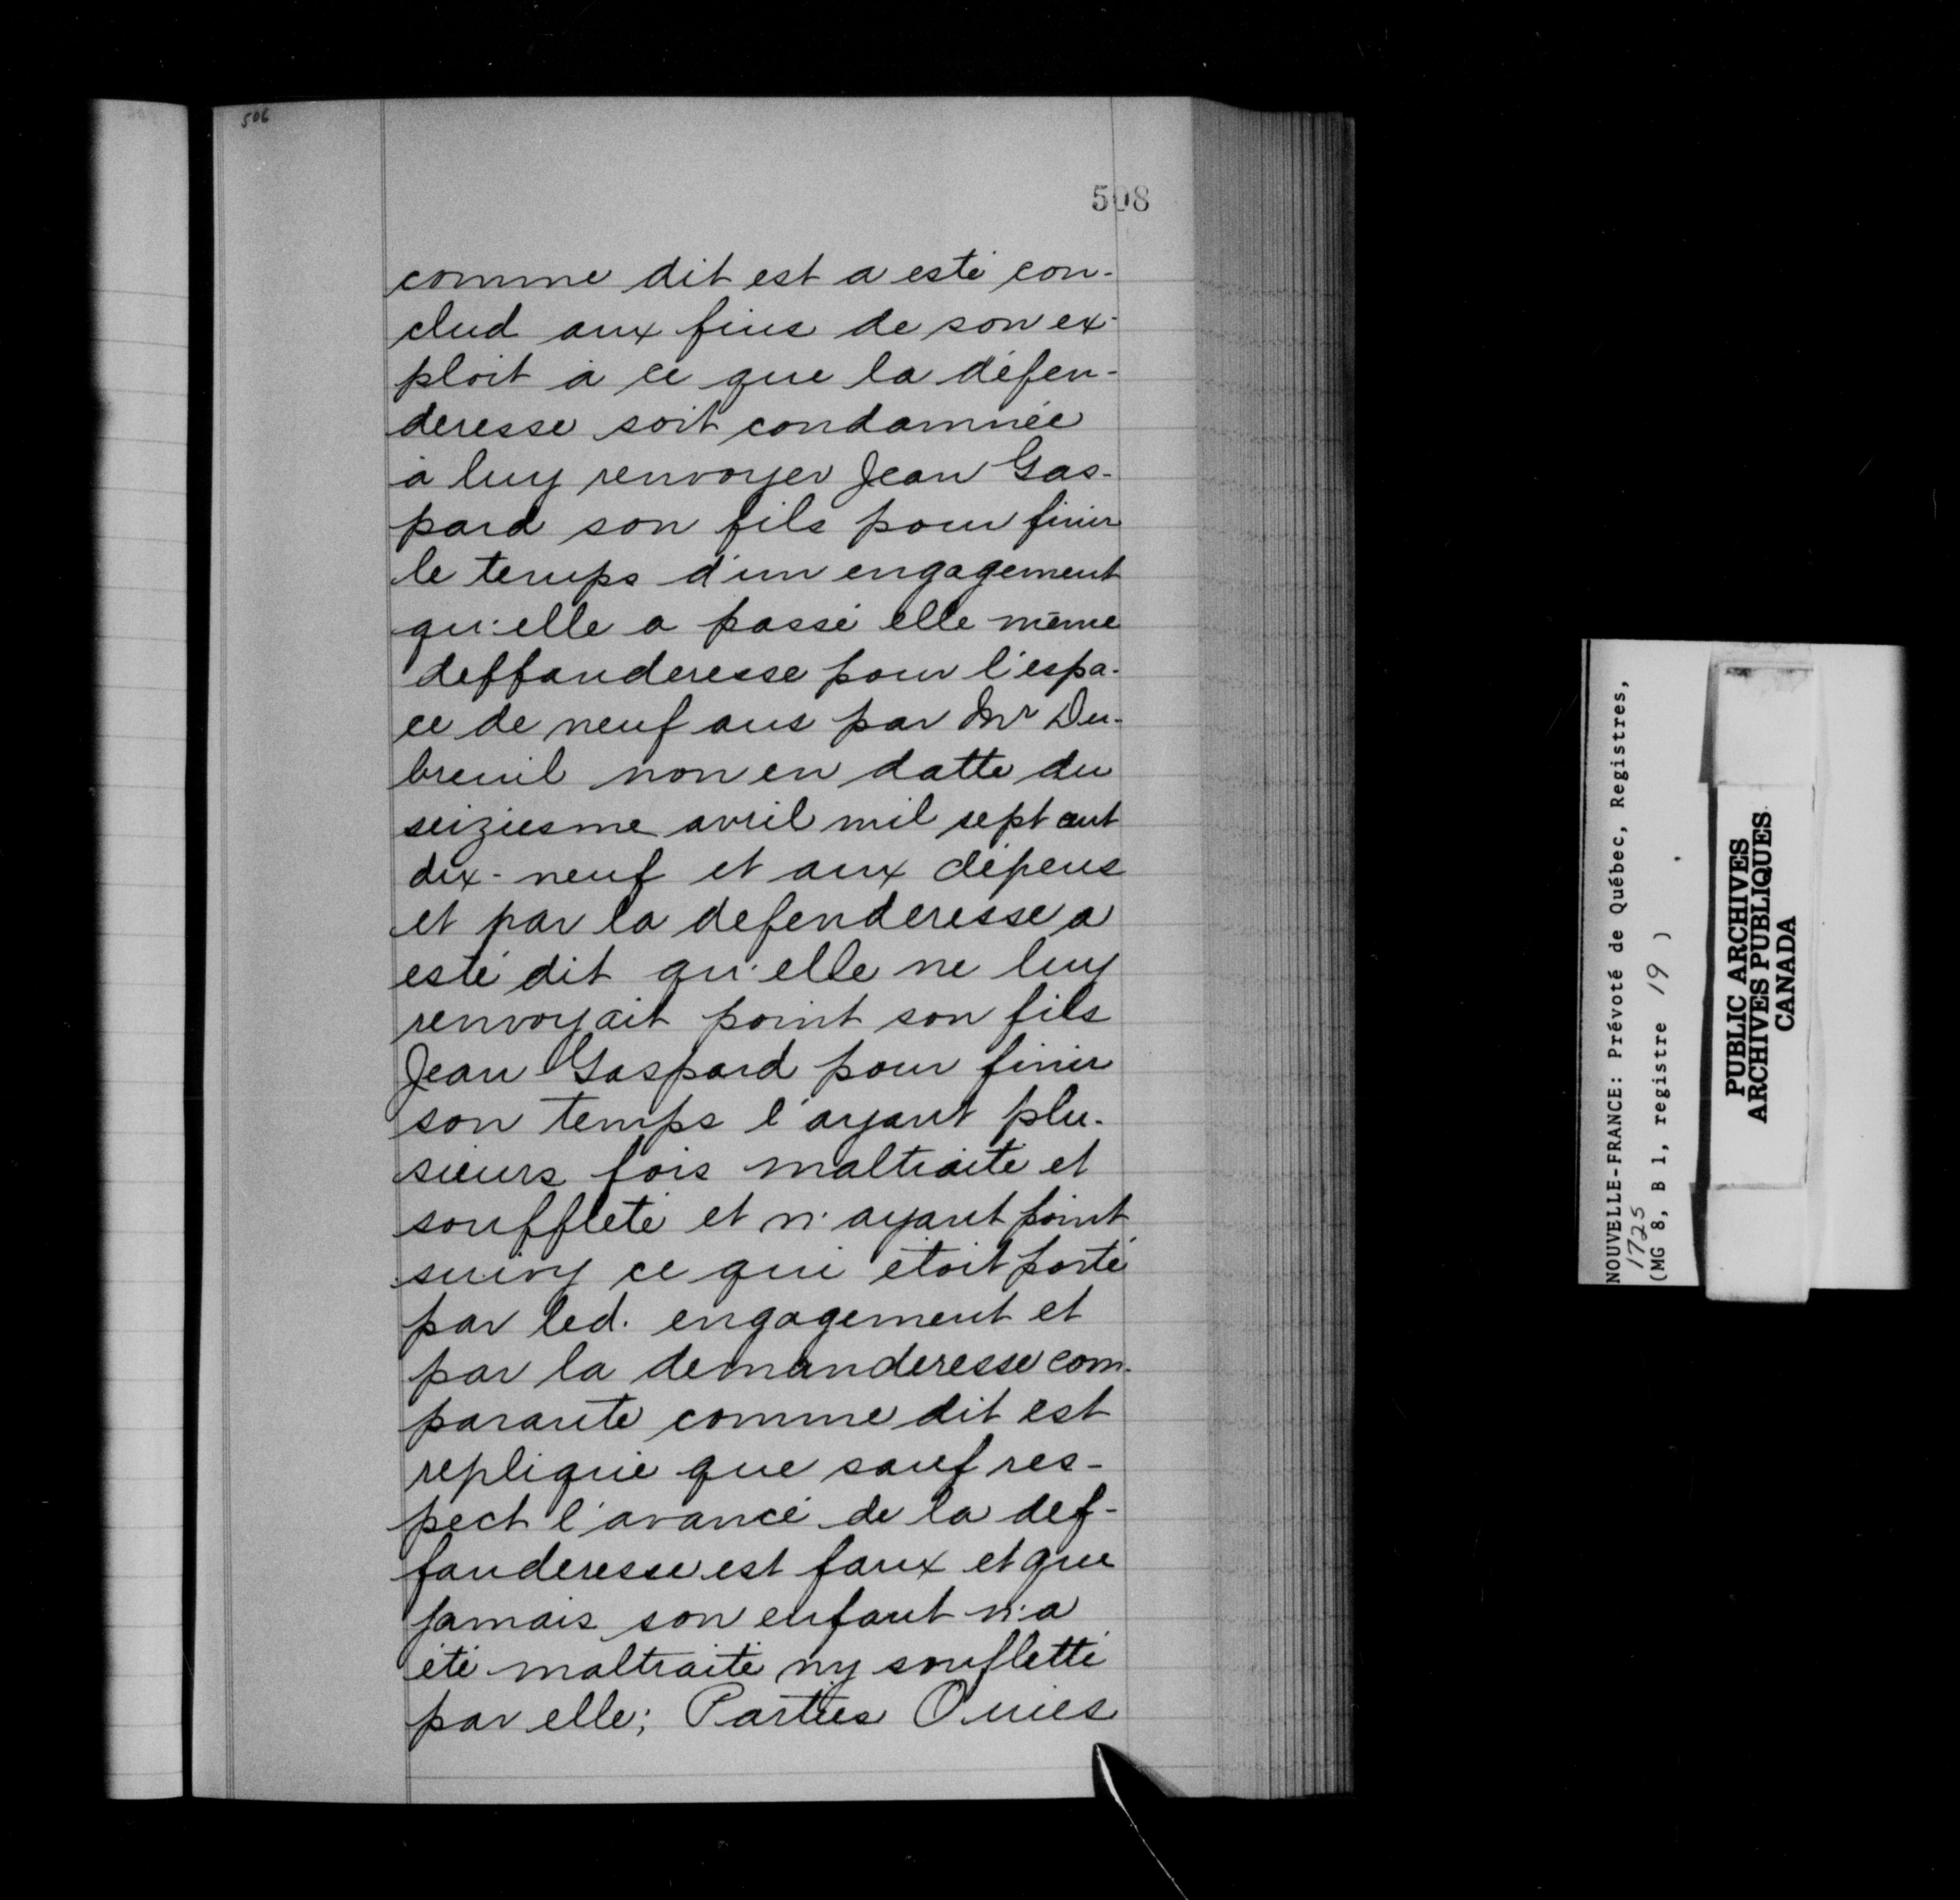 506
508
comme dit est a esté con-
clud aux fins de son ex-
ploit à ce que la défen-
deresse soit condamnée
à luy renvoyer Jean Gas-
pard son fils pour finir
le temps d'un engagement
qu'elle a passé elle même
deffanderesse pour l'espa-
ce de neuf ans par Mr Du-
breuil non en datte du
seiziesme avril mil sept cent
dix-neuf et aux dépens
et par la defenderesse a
esté dit qu'elle ne luy
renvoyait point son fils
Jean Gaspard pour finir
son temps l'ayant plu-
sieurs fois maltraité et
souffleté et n'ayant point
suivy ce qui étoit porté
par led. engagement et
par la demanderesse com-
parante comme dit est
repliqué que sauf res-
pect l'avancé de la def-
fanderesse est faux et que
jamais son enfant n'a
été maltraité ny souffletté
par elle; Parties Ouies
NOUVELLE-FRANCE: Prévoté de Québec, Registres,
1725
(MG 8, B 1, registre 19 )
PUBLIC ARCHIVES
ARCHIVES PUBLIQUES
CANADA